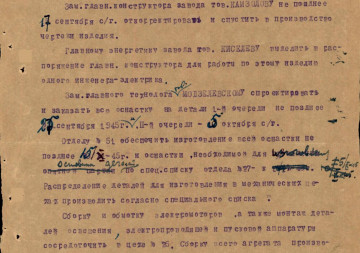 Зам.главн.конструктора завода тов. не позднее
17 сентября с/г. откорректировать и спустить в производство
чертежи изделия.
Главному энергетику завода тов. КИСЕЛЕВУ выделить в рас-
поряжение главн. конструктора для работы по этому изделию
одного инженера-электрика.
Зам.главного технолога спроектировать
и заказать всю оснастку на детали 1-й очереди не позднее
25 сентября 1945г., II-й очереди - 5 октября с/г.
Отделу № 51 обеспечить изготовление всей оснастки не
позднее 15/X-45г. и оснастки, необходимой для
по спец.списку отдела №17-
Распределение деталей для изготовления в механических це-
хах производить согласно специального списка
Сборку и обмотку электромоторов, а также монтаж дета-
лей освещения, электропроводки и пусковой аппаратуры
сосредоточить в цехе № 76. Сборку всего агрегата произве-